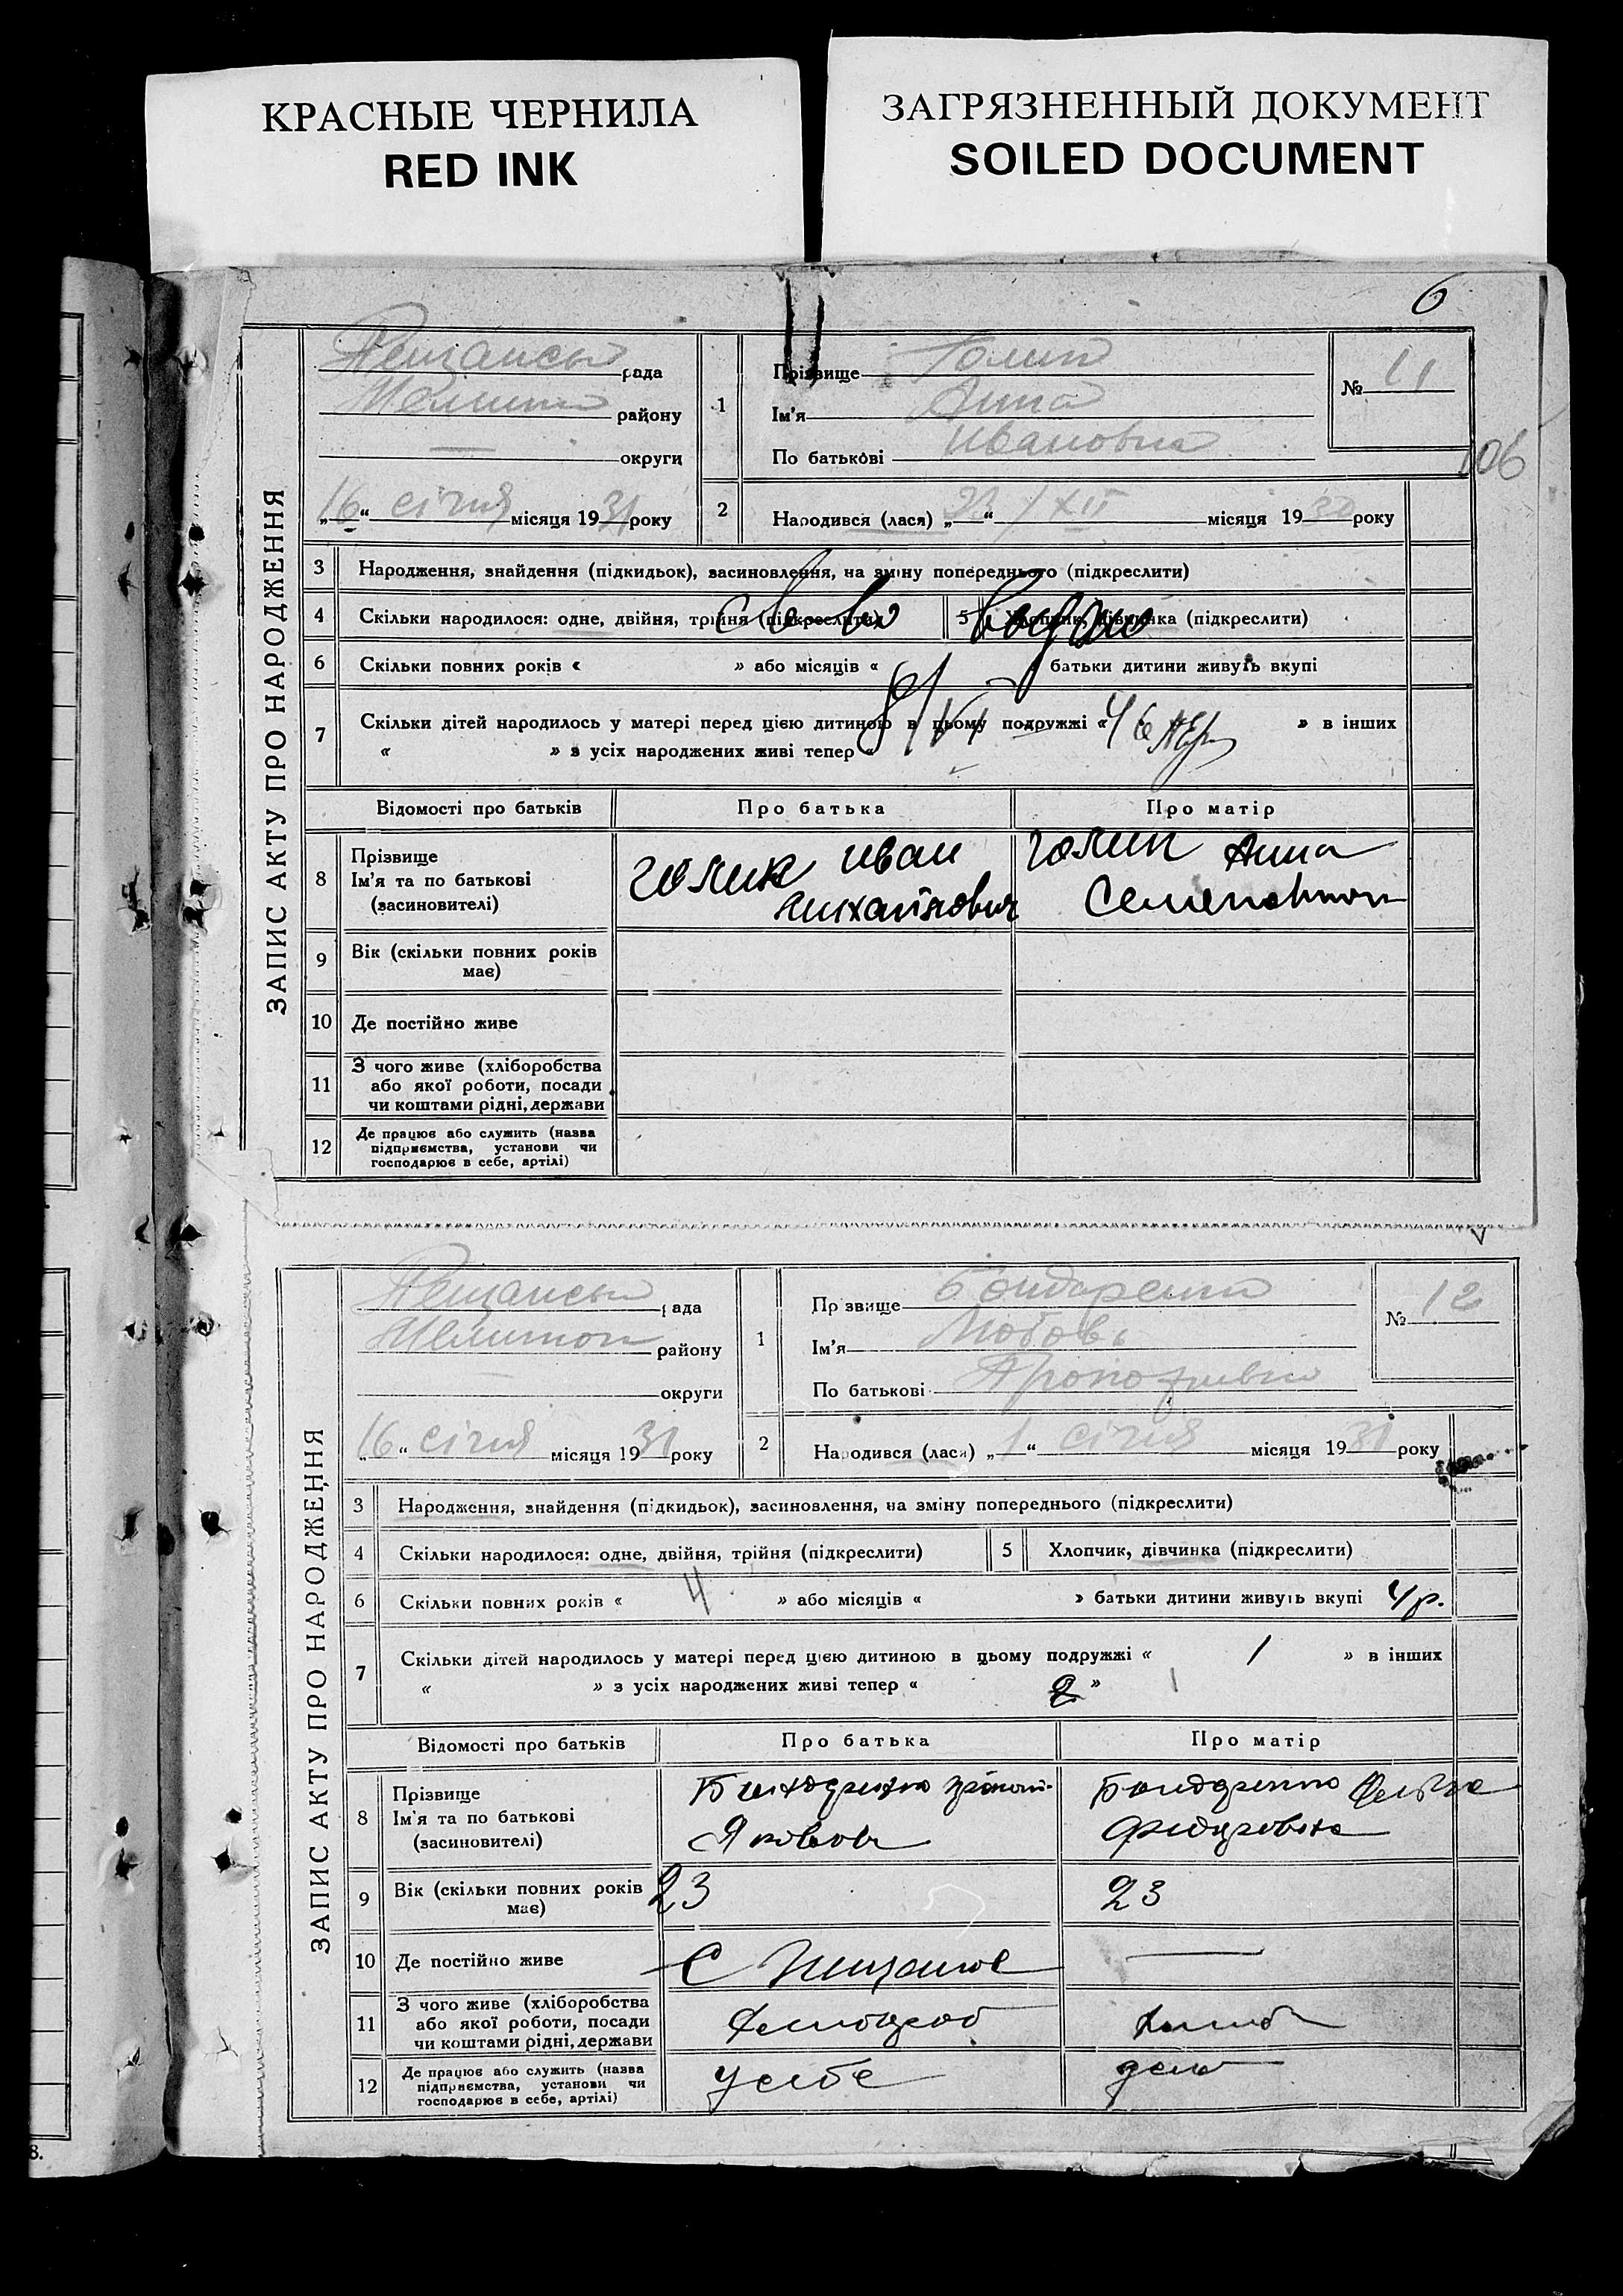 КРАСНЫЕ ЧЕРНИЛА
RED INK
ЗАГРЯЗНЕННЫЙ ДОКУМЕНТ
SOILED DOCUMENT
6
106
ЗАПИС АКТУ ПРО НАРОДЖЕННЯ
рада
району
округи
„16“ січня місяця 1931 року
1
Прізвище Голик
Ім'я Анна
По батькові Ивановна
№ 11
2
Народився (лася) „ “ XII місяця 1930 року
3 Народження, знайдення (підкидьок), засиновлення, на зміну попереднього (підкреслити)
4 Скільки народилося: одне, двійня, трійня (підкреслити)
5 Хлопчик, дівчинка (підкреслити)
6 Скільки повних років « » або місяців « батьки дитини живуть вкупі
7 Скільки дітей народилось у матері перед цією дитиною в цьому подружжі « » в інших
« » з усіх народжених живі тепер «
Відомості про батьків Про батька Про матір
8 Прізвище
Ім'я та по батькові
(засиновителі)
Голик Иван
Михайлович
Голик Анна
9 Вік (скільки повних років
має)
10 Де постійно живе
11 З чого живе (хліборобства
або якої роботи, посади
чи коштами рідні, держави
12 Де працює або служить (назва
підприємства, установи чи
господарює в себе, артілі)
ЗАПИС АКТУ ПРО НАРОДЖЕННЯ
рада
району
округи
„16“ січня місяця 1931 року
1
Прізвище Бондаренко
Ім'я Любовь
По батькові
№ 12
2
Народився (лася) „1“ січня місяця 1931 року
3 Народження, знайдення (підкидьок), засиновлення, на зміну попереднього (підкреслити)
4 Скільки народилося: одне, двійня, трійня (підкреслити)
5 Хлопчик, дівчинка (підкреслити)
6 Скільки повних років « 4 » або місяців « » батьки дитини живуть вкупі 4 р.
7 Скільки дітей народилось у матері перед цією дитиною в цьому подружжі « 1 » в інших
« » з усіх народжених живі тепер « 2 » 1
Відомості про батьків Про батька Про матір
8 Прізвище
Ім'я та по батькові
(засиновителі)
Бондаренко
9 Вік (скільки повних років
має)
23
23
10 Де постійно живе
11 З чого живе (хліборобства
або якої роботи, посади
чи коштами рідні, держави
12 Де працює або служить (назва
підприємства, установи чи
господарює в себе, артілі)
у себе
8.